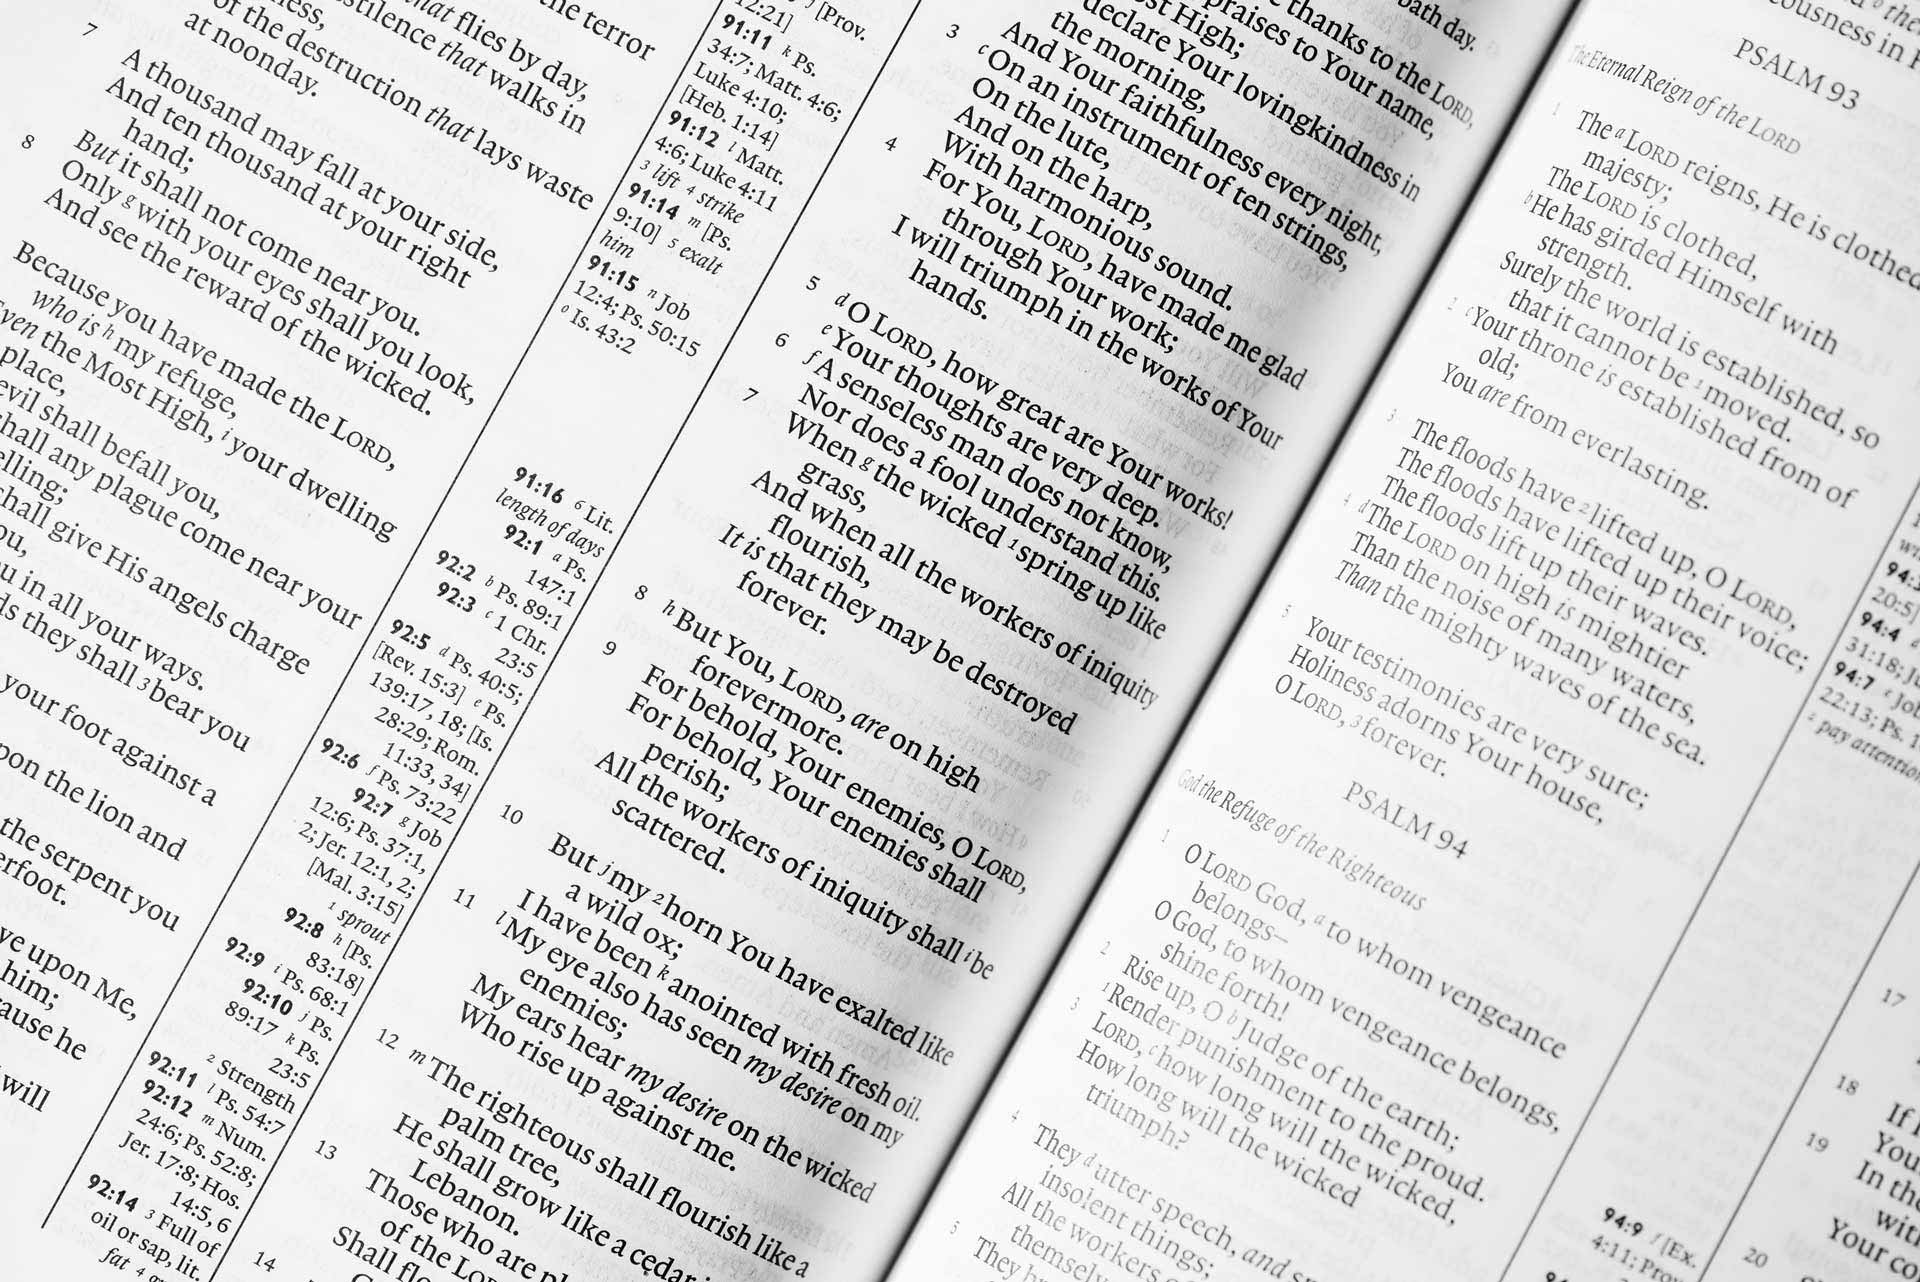 the terror
that flies by day,
stilence that walks in
of the destruction that lays waste
at noonday.
7
A thousand may fall at your side,
And ten thousand at your right
hand;
But it shall not come near you.
8
Only g with your eyes shall you look,
And see the reward of the wicked.
Because you have made the LORD,
who is h my refuge,
Even the Most High, i your dwelling
place,
evil shall befall you,
shall any plague come near your
elling;
shall give His angels charge
ou,
u in all your ways.
ds they shall 3 bear you
your foot against a
pon the lion and
the serpent you
erfoot.
ve upon Me,
him;
ause he
will
12:21] j [Prov.
91:11 k Ps.
34:7; Matt. 4:6;
Luke 4:10;
[Heb. 1:14]
91:12 l Matt.
4:6; Luke 4:11
3 lift 4 strike
91:14 m [Ps.
9:10] 5 exalt
him
91:15 n Job
12:4; Ps. 50:15
o Is. 43:2
91:16 6 Lit.
length of days
92:1 a Ps.
147:1
92:2 b Ps. 89:1
92:3 c 1 Chr.
23:5
92:5 d Ps. 40:5;
[Rev. 15:3] e Ps.
139:17, 18; [Is.
28:29; Rom.
11:33, 34]
92:6 f Ps. 73:22
92:7 g Job
12:6; Ps. 37:1,
2; Jer. 12:1, 2;
[Mal. 3:15]
1 sprout
92:8 h [Ps.
83:18]
92:9 i Ps. 68:1
92:10 j Ps.
89:17 k Ps.
23:5
2 Strength
92:11 l Ps. 54:7
92:12 m Num.
24:6; Ps. 52:8;
Jer. 17:8; Hos.
14:5, 6
92:14 3 Full of
oil or sap, lit.
fat
bath day.
thanks to the LORD,
praises to Your name,
st High;
declare Your lovingkindness in
the morning,
And Your faithfulness every night,
3
c On an instrument of ten strings,
On the lute,
And on the harp,
With harmonious sound.
4
For You, LORD, have made me glad
through Your work;
I will triumph in the works of Your
hands.
5
d O LORD, how great are Your works!
e Your thoughts are very deep.
6
f A senseless man does not know,
Nor does a fool understand this.
7
When g the wicked 1 spring up like
grass,
And when all the workers of iniquity
flourish,
It is that they may be destroyed
forever.
8
h But You, LORD, are on high
forevermore.
9
For behold, Your enemies, O LORD,
For behold, Your enemies shall
perish;
All the workers of iniquity shall i be
scattered.
10
But j my 2 horn You have exalted like
a wild ox;
I have been k anointed with fresh oil.
11
l My eye also has seen my desire on my
enemies;
My ears hear my desire on the wicked
Who rise up against me.
12
m The righteous shall flourish like a
palm tree,
He shall grow like a cedar
Lebanon.
13
Those who are
of the LORD
Shall
14
cousness in
PSALM 93
The Eternal Reign of the LORD
1
The a LORD reigns, He is clothed
majesty;
The LORD is clothed,
b He has girded Himself with
strength.
Surely the world is established, so
that it cannot be 1 moved.
2
c Your throne is established from of
old;
You are from everlasting.
3
The floods have 2 lifted up, O LORD,
The floods have lifted up their voice;
The floods lift up their waves.
4
d The LORD on high is mightier
Than the noise of many waters,
Than the mighty waves of the sea.
5
Your testimonies are very sure;
Holiness adorns Your house,
O LORD, 3 forever.
PSALM 94
God the Refuge of the Righteous
1
O LORD God, a to whom vengeance
belongs—
O God, to whom vengeance belongs,
shine forth!
2
Rise up, O b Judge of the earth;
Render punishment to the proud.
3
LORD, c how long will the wicked,
How long will the wicked
triumph?
4
They d utter speech, and
insolent things;
All the workers
themselves
5
They
20:5]
94:4
31:18;
94:7 e Job
22:13; Ps.
2 pay attention
94:9 f [Ex.
4:11; Prov.
17
18
If
19
In the
20